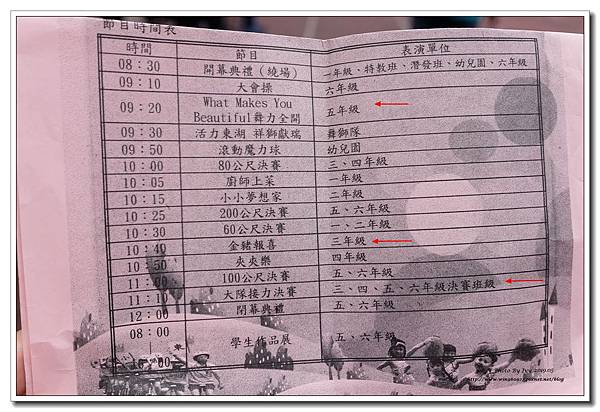 節目時間表
時間 節目 表演單位
08：30 開幕典禮（繞場） 一年級、特教班、潛發班、幼兒園、六年級
09：10 大會操 六年級
09：20 What Makes You
Beautiful舞力全開 五年級
09：30 活力東湖 祥獅獻瑞 舞獅隊
09：50 滾動魔力球 幼兒園
10：00 80公尺決賽 三、四年級
10：05 廚師上菜 一年級
10：15 小小夢想家 二年級
10：25 200公尺決賽 五、六年級
10：30 60公尺決賽 一、二年級
10：40 金豬報喜 三年級
10：50 夾夾樂 四年級
11：00 100公尺決賽 五、六年級
11：10 大隊接力決賽 三、四、五、六年級決賽班級
12：00 閉幕典禮 五、六年級
08：00
學生作品展 五、六年級
：00
Photo By Ivy 2019.03